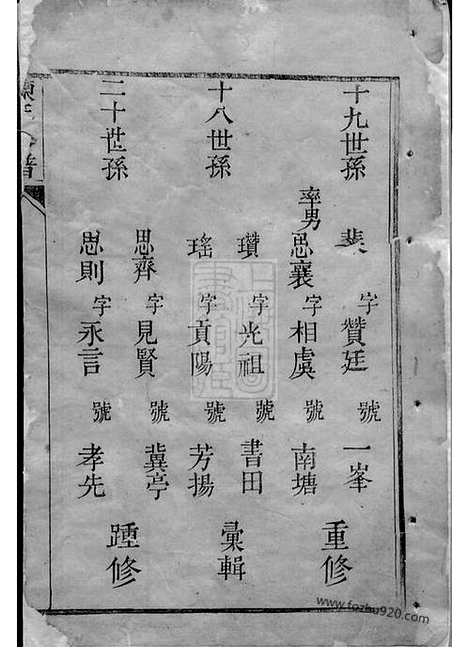 十九世孫 裴 字贊廷 號一峯 重修
率男思襄 字相虞 號南塘
十八世孫 瓚 字光祖 號書田 彙輯
瑤 字貢陽 號芳揚
二十世孫 思齊 字見賢 號冀亭 踵修
思則 字永言 號孝先
www.fozhu920.com